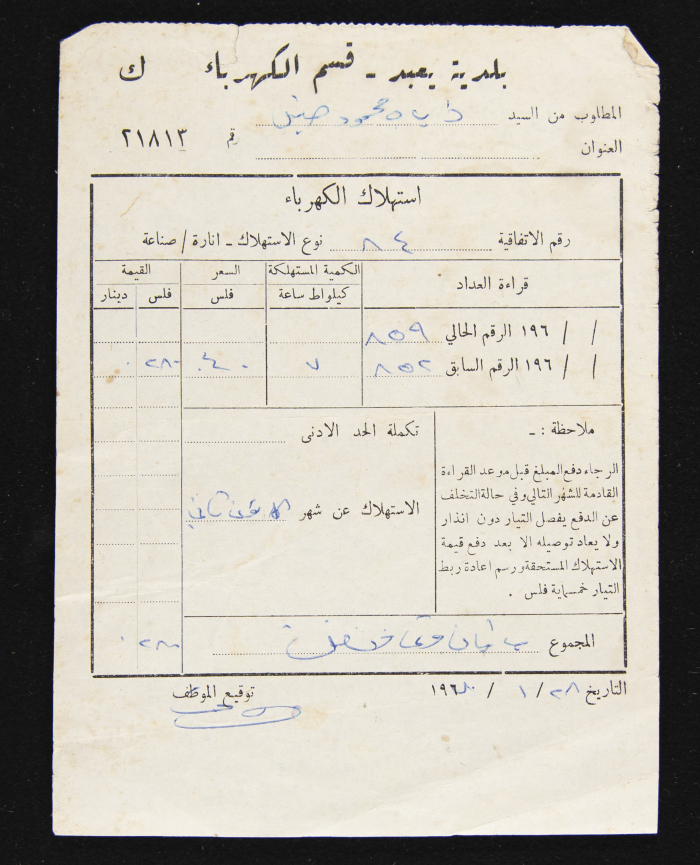 بلدية يعبد - قسم الكهرباء ك
المطلوب من السيد محمود
العنوان رقم ٢١٨١٣
استهلاك الكهرباء
رقم الاتفاقية ٨٤ نوع الاستهلاك - انارة / صناعة
قراءة العداد الكمية المستهلكة السعر القيمة
كيلواط ساعة فلس فلس دينار
/ / ١٩٦ الرقم الحالي ٨٥٩
/ / ١٩٦ الرقم السابق ٨٥٢ ٧ ٤٠ ٢٨٠
ملاحظة : -
الرجاء دفع المبلغ قبل موعد القراءة
القادمة للشهر التالي وفي حالة التخلف
عن الدفع يفصل التيار دون انذار
ولا يعاد توصيله الا بعد دفع قيمة
الاستهلاك المستحقة ورسم اعادة ربط
التيار خمسماية فلس .
تكملة الحد الادنى
الاستهلاك عن شهر كانون ثاني
المجموع ٢٨٠
التاريخ ٢٨ / ١ / ١٩٦
توقيع الموظف